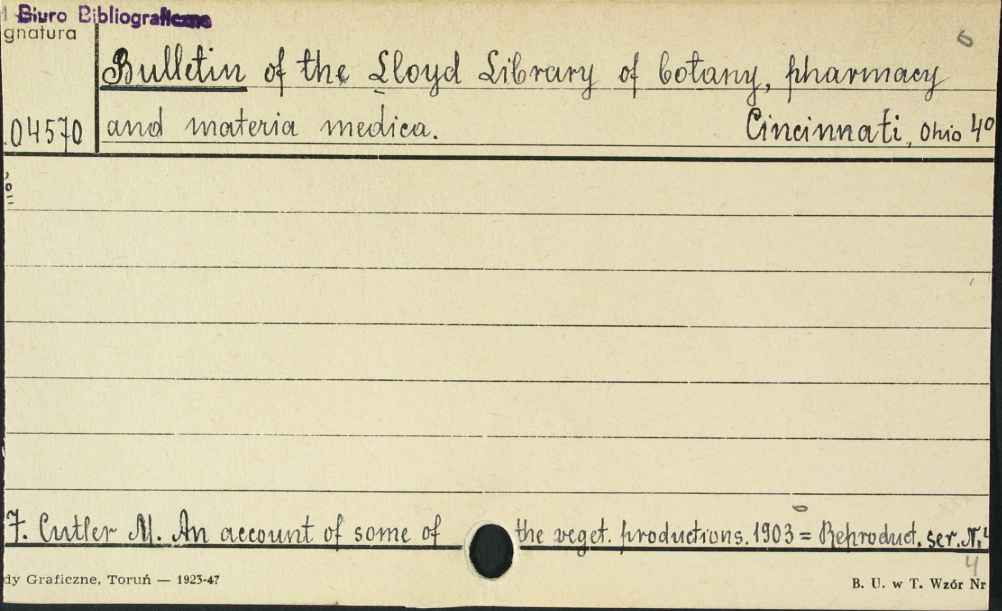 Biuro Bibliograficzne
gnatura
6
Bulletin of the Lloyd Library of botany, pharmacy
04570 and materia medica. Cincinnati, Ohio 4°
7. Cutler M. An account of some of the veget. productions. 1903 = Reproduct. ser. N. 4
4
dy Graficzne, Toruń — 1923-47
B. U. w T. Wzór Nr